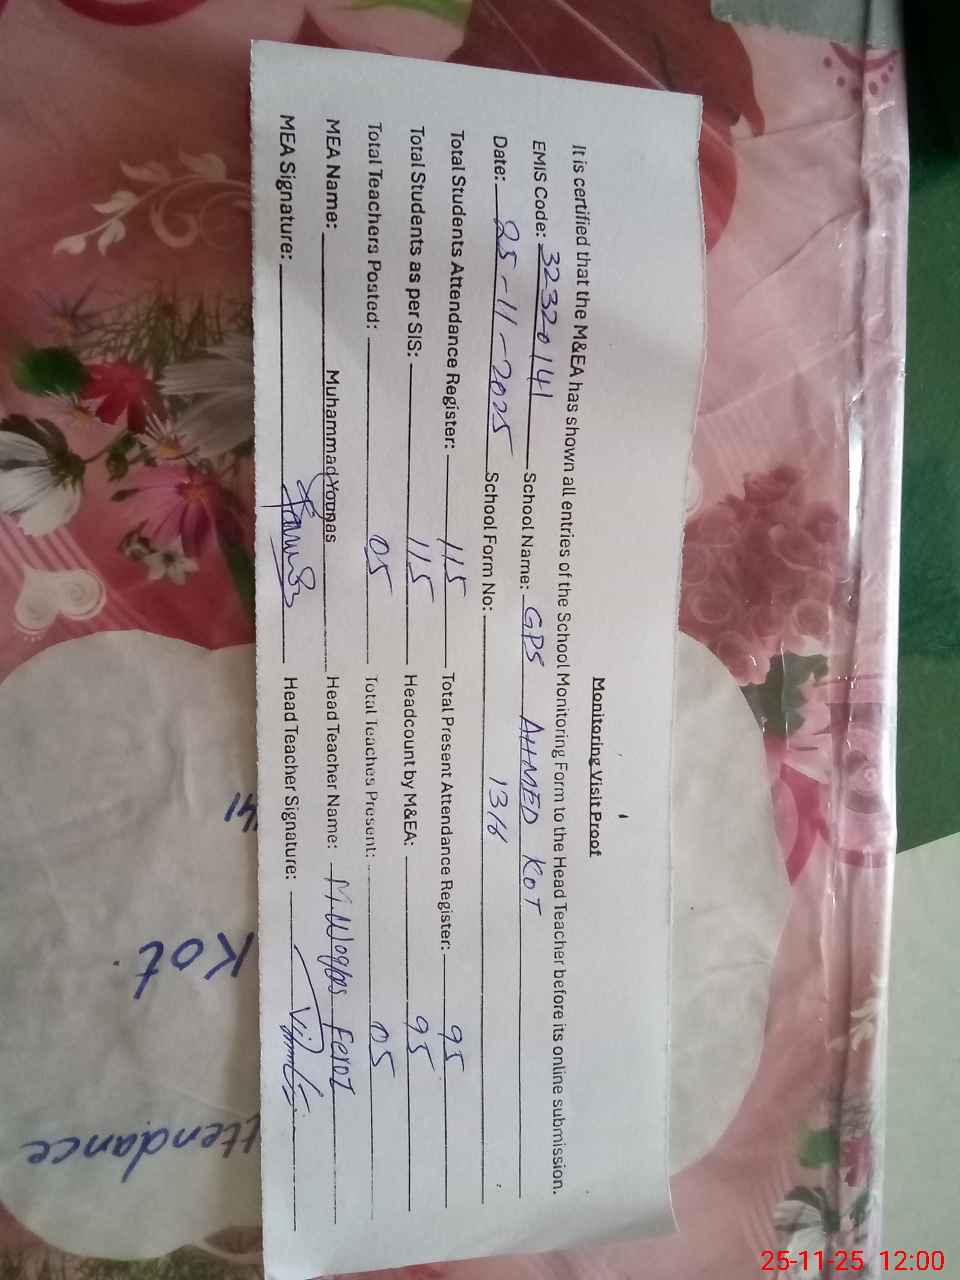 Monitoring Visit Proof
It is certified that the M&EA has shown all entries of the School Monitoring Form to the Head Teacher before its online submission.
EMIS Code: 32320141 School Name: GPS AHMED KOT
Date: 25-11-2025 School Form No: 1316
Total Students Attendance Register: 115 Total Present Attendance Register: 95
Total Students as per SIS: 115 Headcount by M&EA: 95
Total Teachers Posted: 05 Total Teaches Present: 05
MEA Name: Muhammad Younas Head Teacher Name: M. Waqas Feroz
MEA Signature: Head Teacher Signature:
41
Kot.
ttendance
25-11-25 12:00